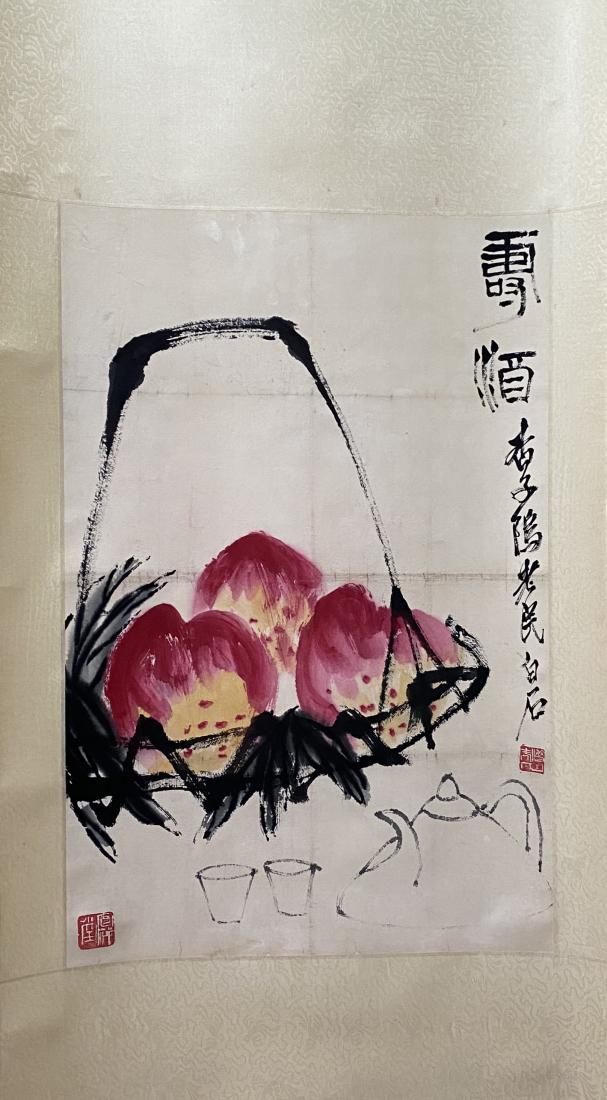 壽酒
杏子隖老民白石